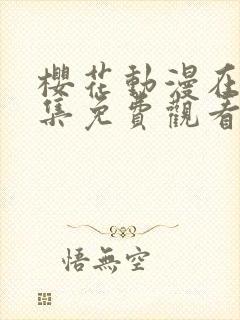 櫻花動漫在
集免費觀看
悟無空